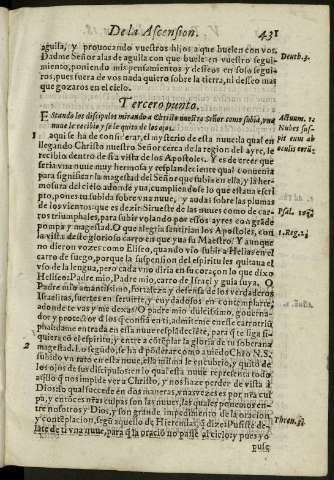 De la Ascension. 431
aguila, y prouocando vuestros hijos a que buelen con vos.
Dadme Señor alas de aguila con que buele en vuestro segui-
miento, poniendo mis pensamientos y desseos en solo segui-
ros, pues fuera de vos nada quiero sobre la tierra, ni desseo mas
que gozaros en el cielo.
Deuth. 3.
Tercero punto.
EStando los discipulos mirando a Christo nuestro Señor como subia, vna
nuue le recibio, y se le quito de los ojos.
Actuum. 1.
Nubes sus-
1 aqui se ha de considerar, el mysterio desta nuue la qual en
llegando Christo nuestro Señor cerca de la region del ayre, le
recibio dentro de si a vista de los Apostoles. Y es de creer que
seria vna nuue muy hermosa y resplandeciente qual conuenia
para significar la magestad del Señor que subia en ella, y la her-
mosura del cielo adonde yua, cumpliendose lo que estaua escri-
pto, pones tu subida sobre vna nuue, y andas sobre las plumas
de los vientos que es dezir: Siruete de las nuues como de car-
ros triumphales, para subir volando por essos ayres con grade
pompa y magestad. O que alegria sentirian los Apostoles, con
la vista deste glorioso carro en que yua su Maestro! Y aunque
no dieron vozes como Eliseo, quando vio subir a Helias en el
carro de fuego, porque la suspension del espiritu les quitaua el
vso de la lengua, pero cada vno diria en su coraçon lo que dixo
Heliseo: Padre mio, Padre mio, carro de Israel y guia suya. O
Padre mio amantissimo, fortaleza y defensa de los verdaderos
Israelitas, fuertes en seruirte, y cuydadosos en contemplarte,
adonde te vas y me dexas? O padre mio dulcissimo, gouerna-
dor y protector
2 magestad. Lo segundo, se ha
subido vn rato en esta nuue, ella misma le encubrio, y quitó de
los ojos de sus discipulos: en lo qual esta nuue representa todo
aquello q̃ nos impide ver a Christo, y nos haze perder de vista a
Dios: lo qual succede en dos maneras, vnas vezes es por nr̃a cul
pa, y entonces nr̃as culpas son las nuues, las quales ponemos en-
tre nosotros y Dios, y son grande impedimento de la oracion
y cõtẽplacion, segũ aquello de Hieremias, q̃ dize: Pusiste de-
late de ti vna nuue, para q̃ la oraciõ no passe al cielo: y pues yo
pues